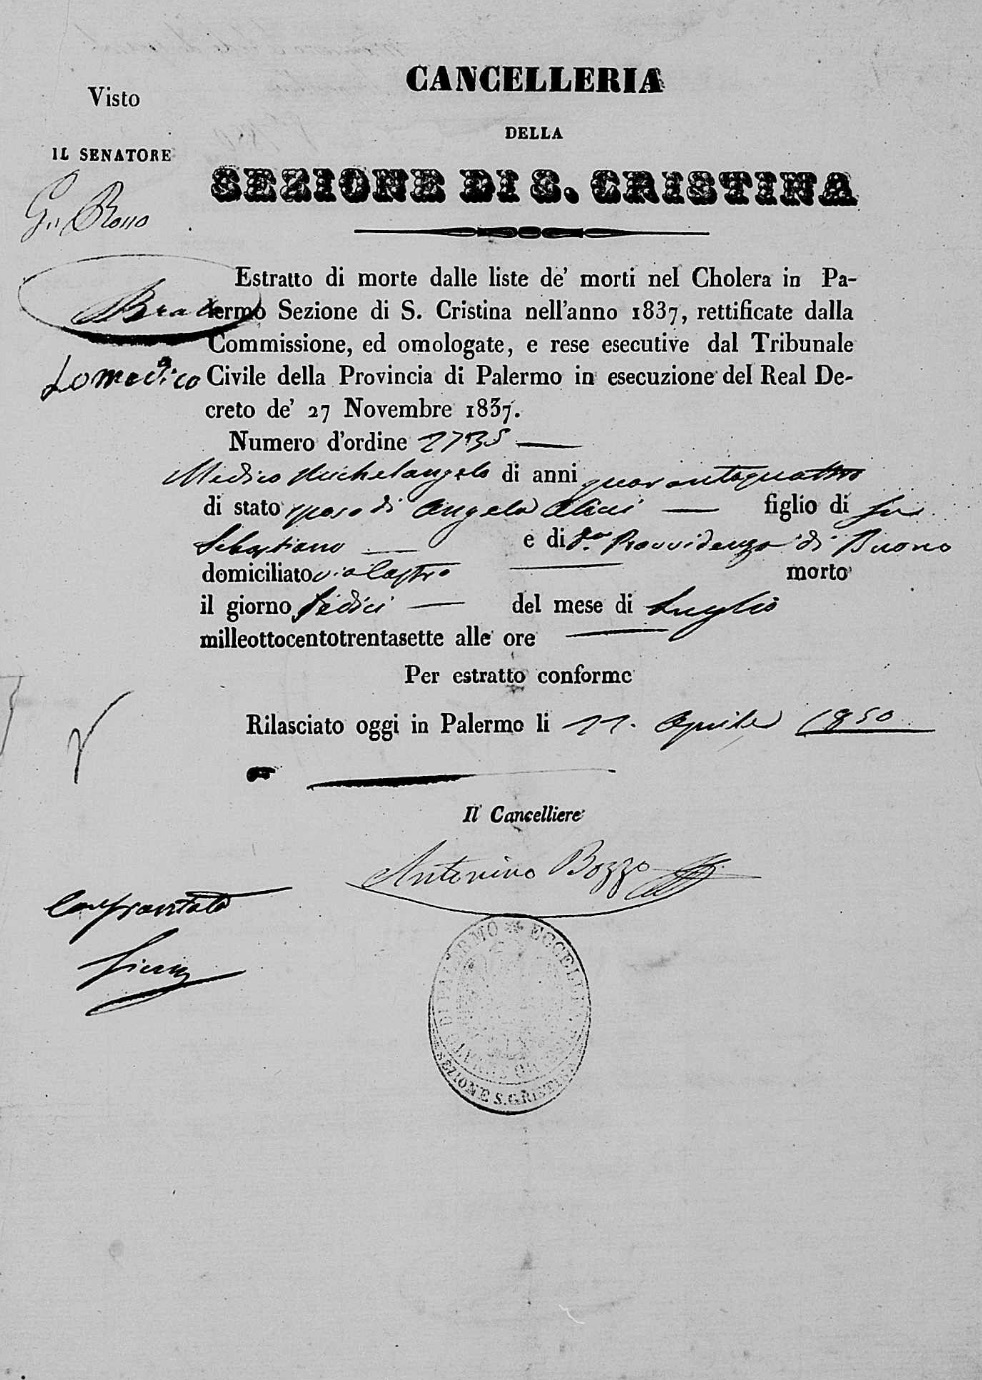 Visto
IL SENATORE
CANCELLERIA
DELLA
SEZIONE DI S. CRISTINA
Estratto di morte dalle liste de' morti nel Cholera in Pa-
lermo Sezione di S. Cristina nell'anno 1837, rettificate dalla
Commissione, ed omologate, e rese esecutive dal Tribunale
Lomedico
Civile della Provincia di Palermo in esecuzione del Real De-
creto de' 27 Novembre 1837.
Numero d'ordine 2735
Medico Michelangelo di anni quarantaquattro
di stato sposo di Angela figlio di fu
Sebastiano e di Provvidenza di Buono
domiciliato via morto
il giorno sedici del mese di Luglio
milleottocentotrentasette alle ore
Per estratto conforme
Rilasciato oggi in Palermo li 11. Aprile 1850
Il Cancelliere
Antonino Bozzo
Confrontato
SEZIONE S. CRISTINA